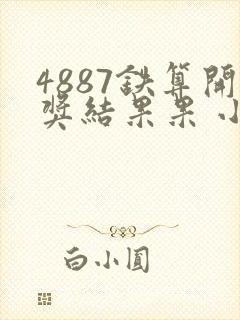 4887鉄算開
奖結果果小
白小圓